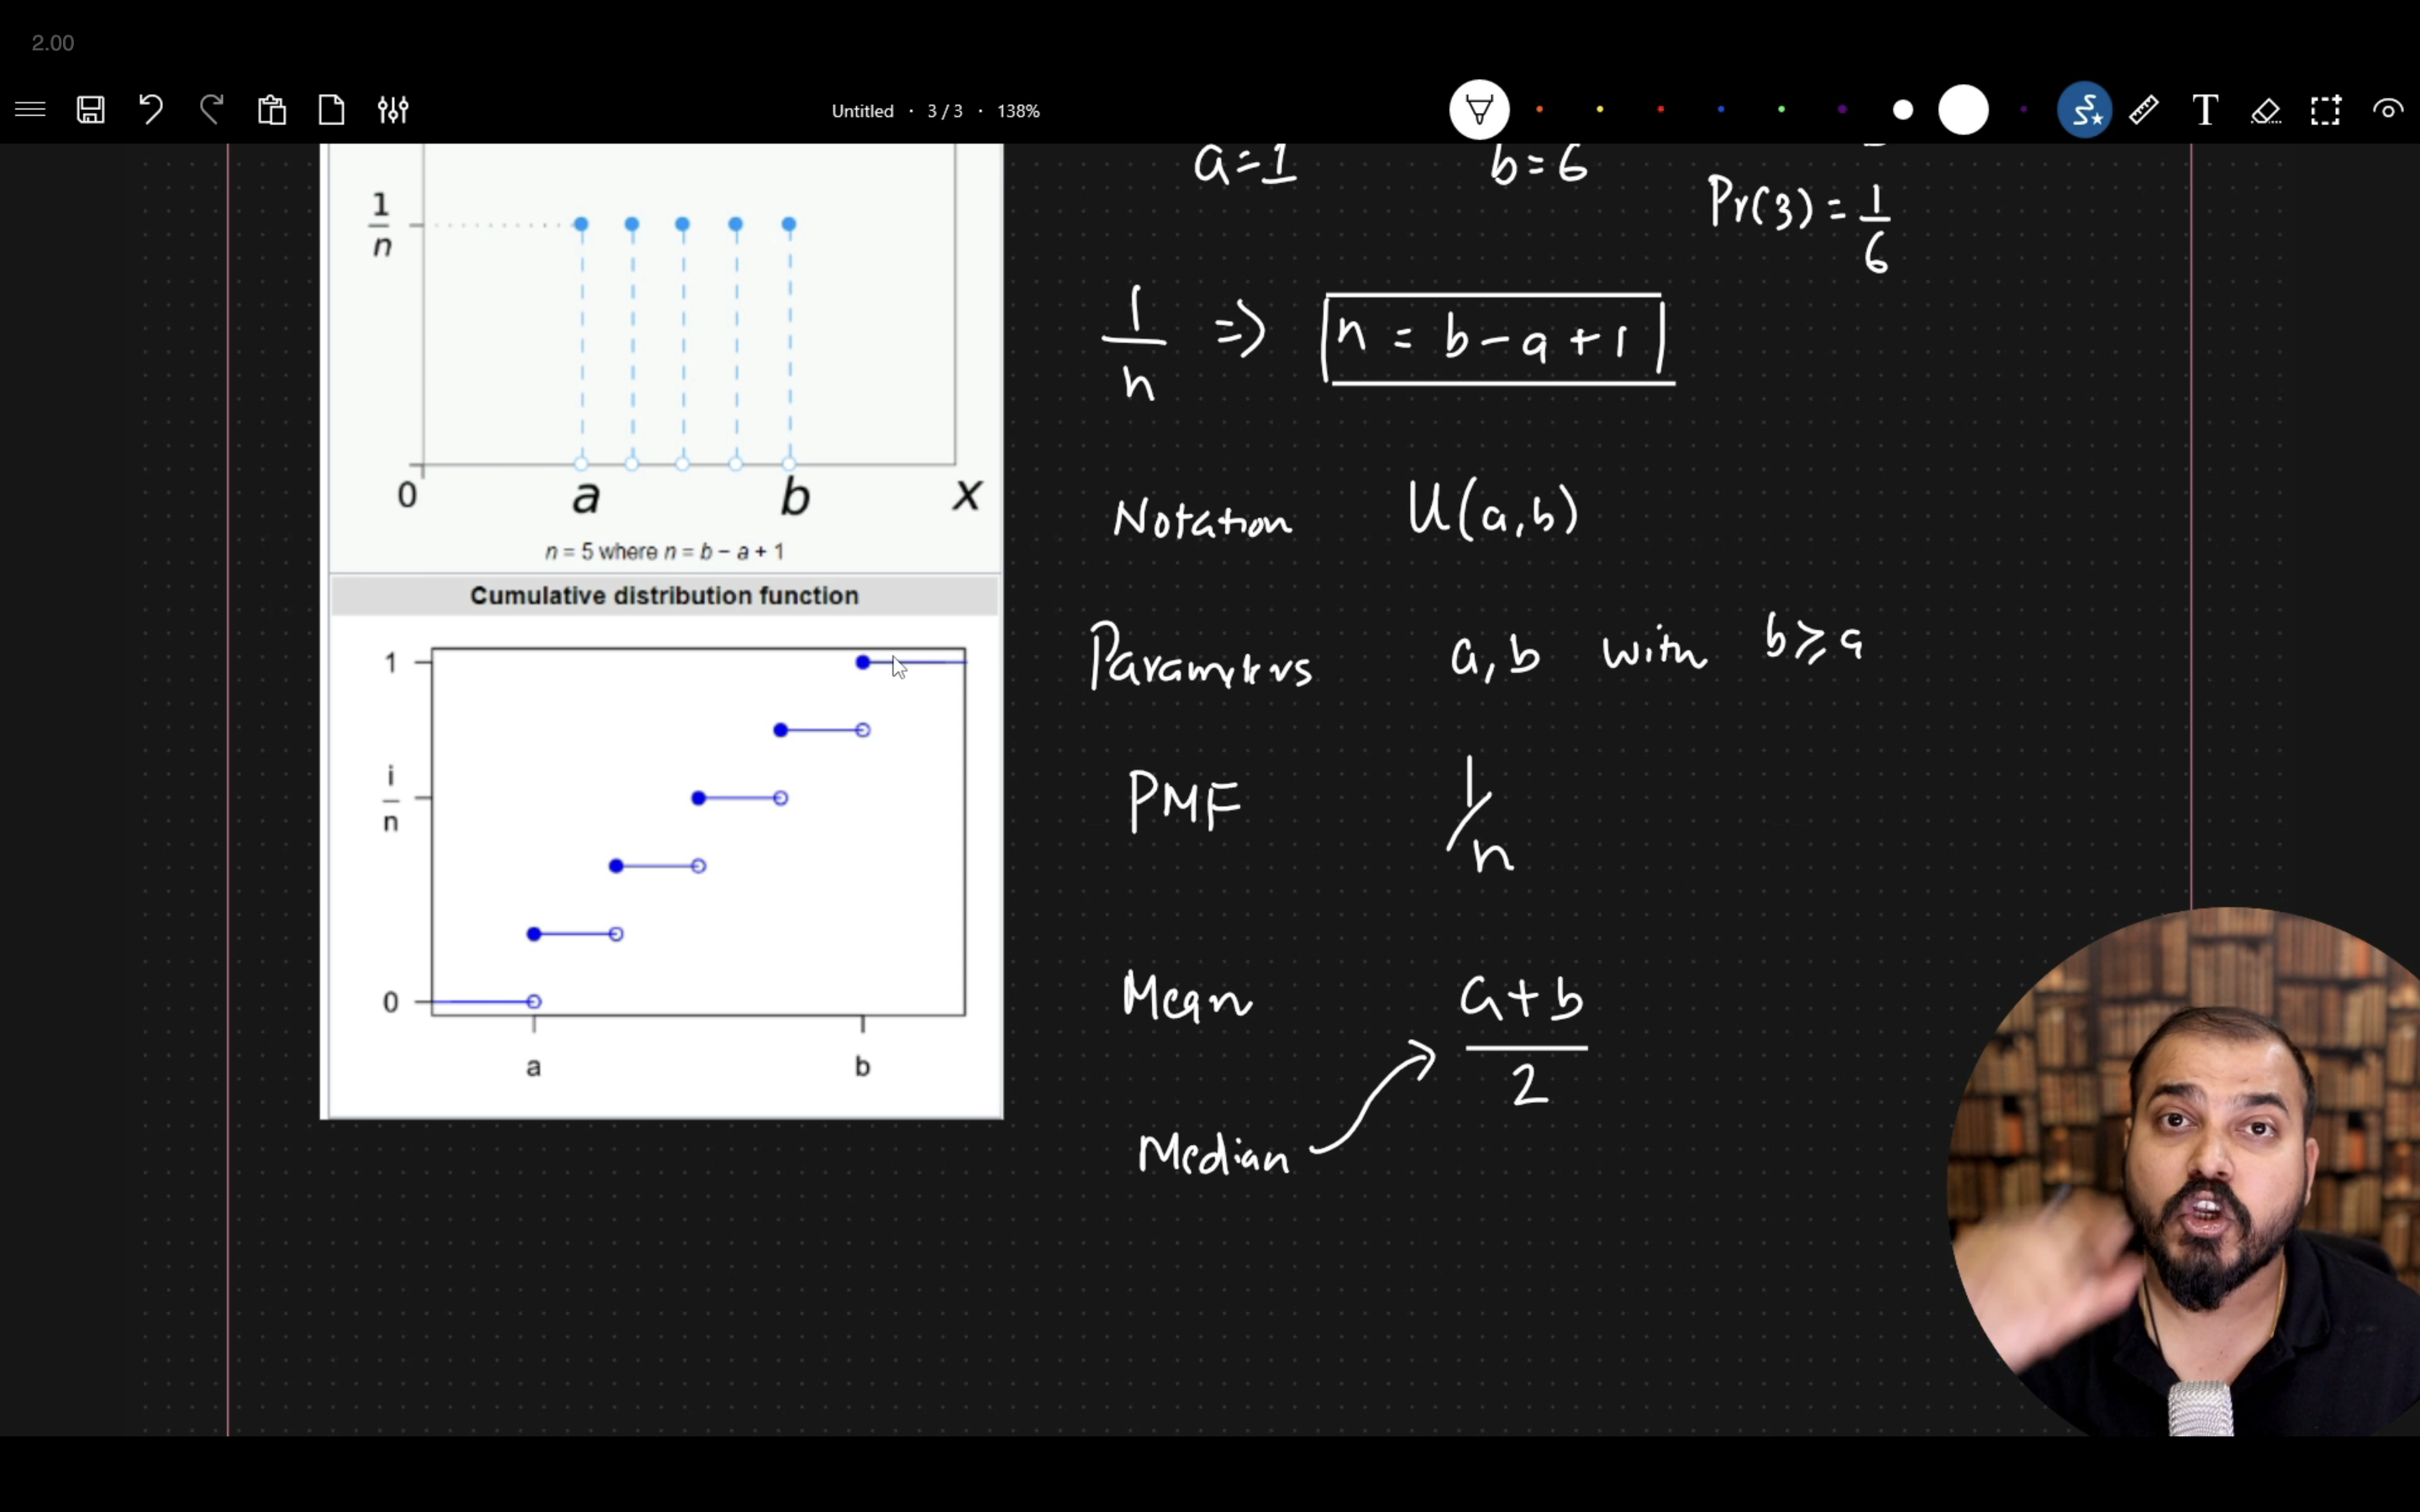 2.00
Untitled · 3 / 3 · 138%
T
1
n
0 a b x
n = 5 where n = b − a + 1
Cumulative distribution function
1
i
n
0
a b
a=1 b=6
Pr(3) = 1
6
1 => n = b - a + 1
n
Notation U(a,b)
Parameters a, b with b ⩾ a
PMF 1/n
Mean a+b
2
Median